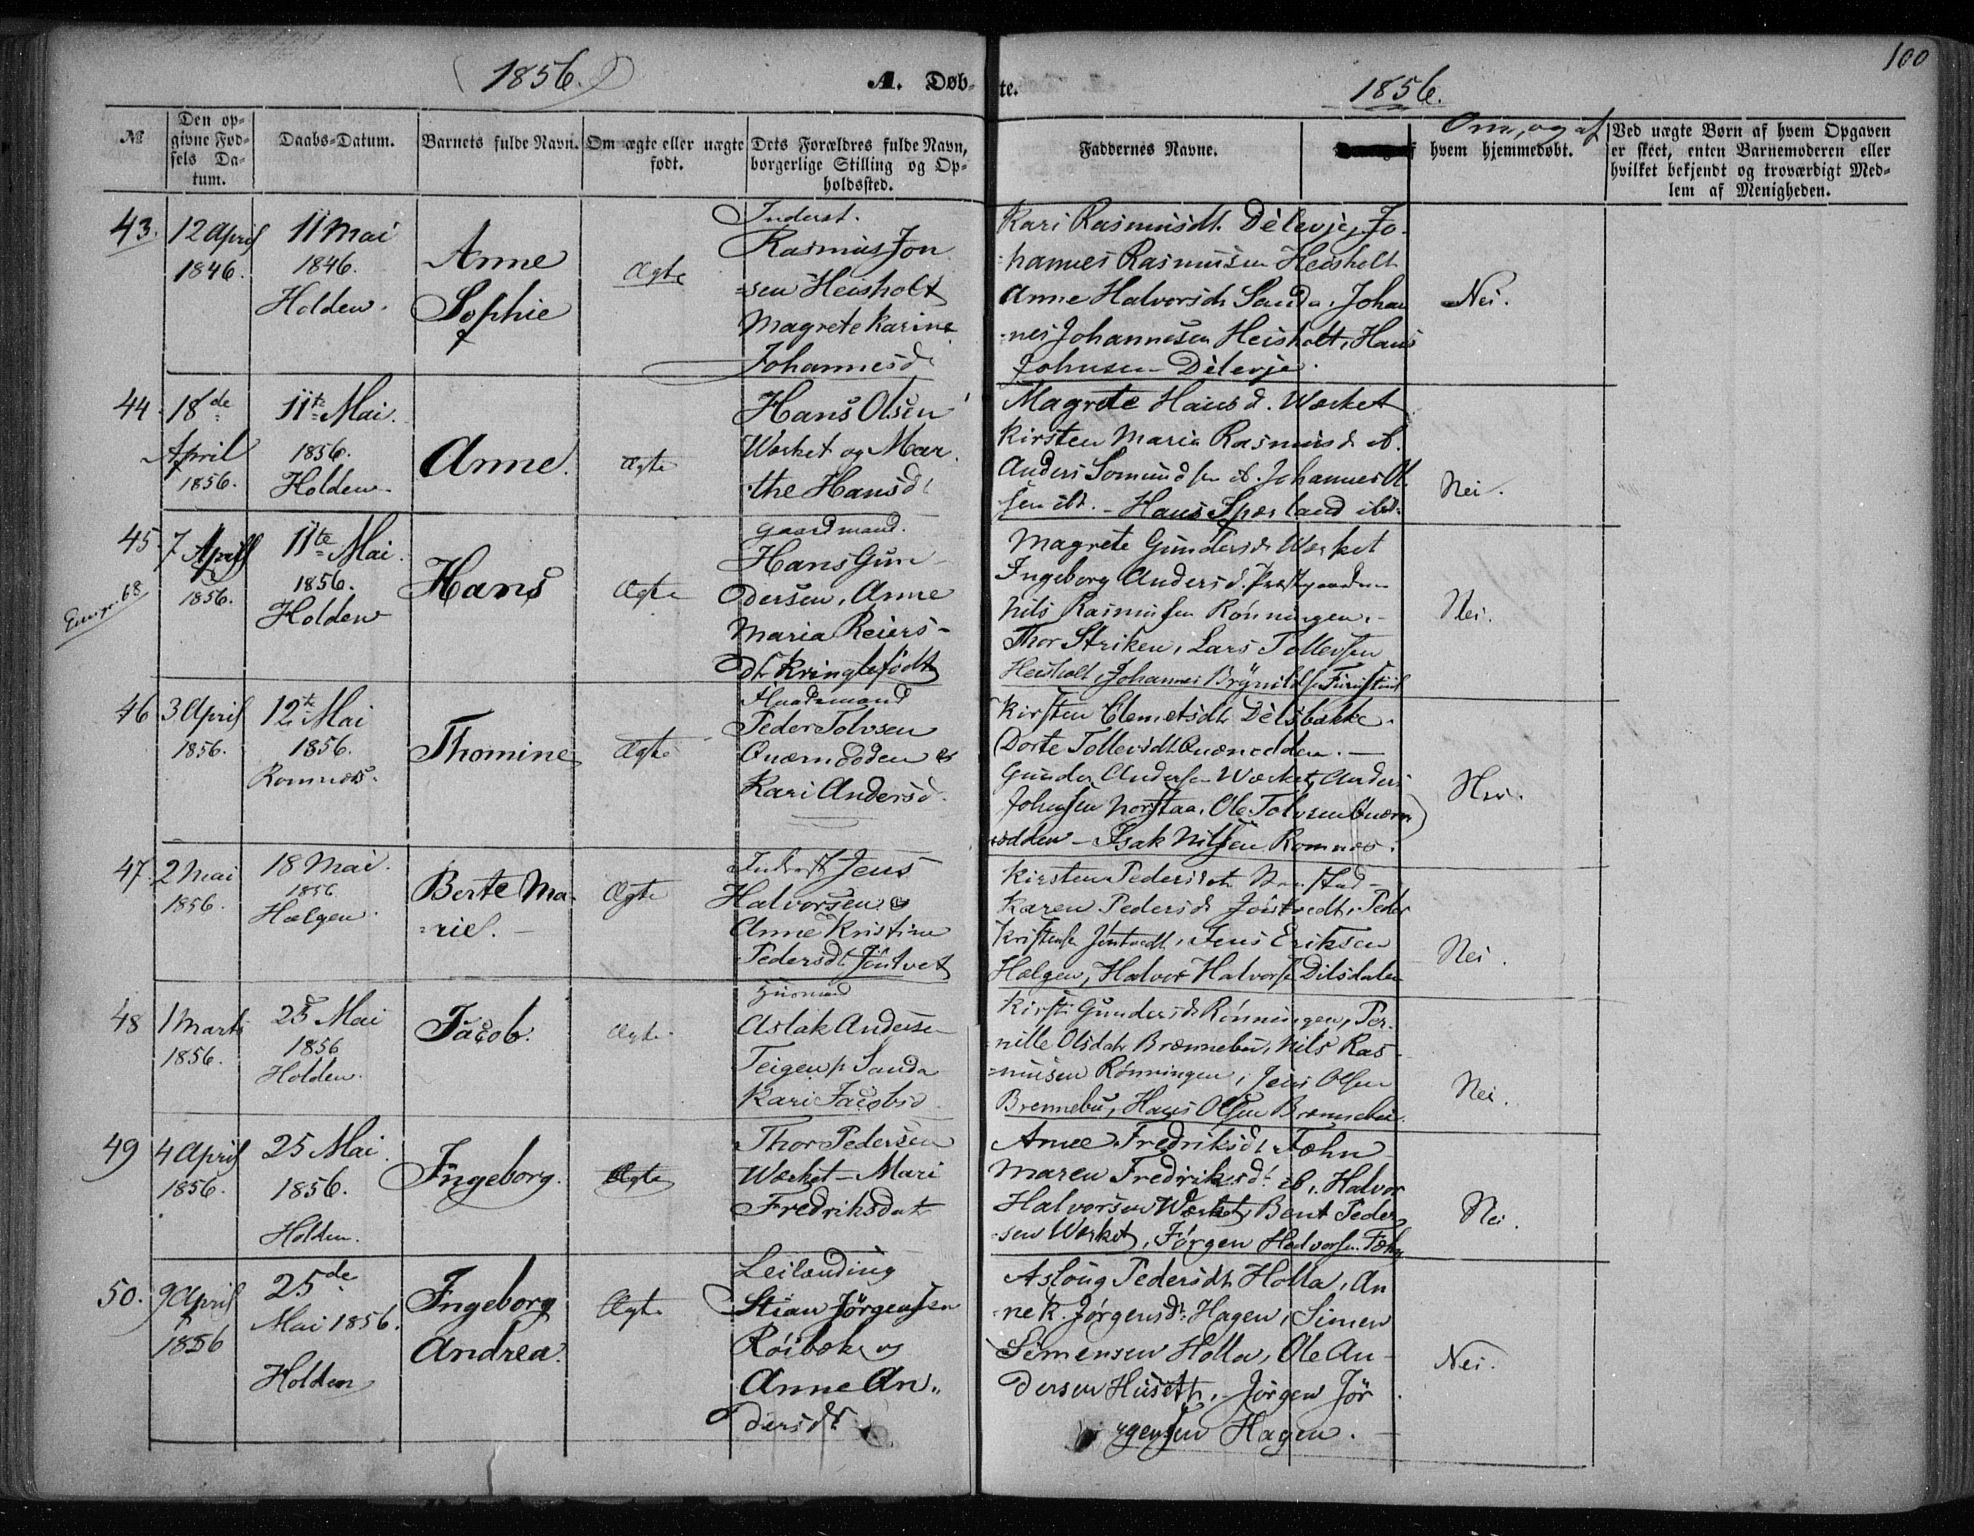 1856.
A. Døb-
te.
1856.
100
№
Den op-
givne Fød-
sels Da-
tum.
Daabs-Datum.
Barnets fulde Navn.
Om ægte eller uægte
født.
Dets Forældres fulde Navn,
borgerlige Stilling og Op-
holdssted.
Faddernes Navne.
Om, og af
hvem hjemmedøbt.
Ved uægte Børn af hvem Opgaven
er skeet, enten Barnemoderen eller
hvilket bekjendt og troværdigt Med-
lem af Menigheden.
43.
12 April
1846.
11 Mai
1846.
Holden.
Anne
Sophie
Ægte
Inderst.
Rasmus Jon
-sen Heisholt
Magrete Karine
Johannesd.
Kari Rasmusdt. Dèlevje, Jo-
-hannes Rasmusen Heisholt
Anne Halvorsdt. Sanda, Johan
-nes Johannesen Heisholt, Hans
Johnsen Dèlevje.
Nei.
44.
18de
April
1856.
11te Mai.
1856.
Holden.
Anne.
Ægte
Hans Olsen
Værket og Mar-
the Hansd.
Magrete Hansd. Værket
Kirsten Maria Rasmusd. ib.
Anders Somundsen ib. Johannes Ol
sen ibd. - Hans Sperland ibd.
Nei.
45
Emgr. 68
7 April
1856.
11te Mai.
1856.
Holden
Hans
Ægte
Gaardmand.
Hans Gun-
dersen, Anne
Maria Reiers-
dt. Kringlefödt
Magrete Gundersd. Værket
Ingeborg Andersd. Præstgaarden
Nils Rasmusen Rönningen.
Thor Striken, Lars Tollevsen
Heisholt, Johannes Brÿnilds.
46
3 April
1856.
12te Mai
1856.
Romnæs.
Thomine
Ægte
Peder Tolvsen
Qværnodden &
Kari Andersd.
Kirsten Clemetsdt. Dèlsbakke.
Dorte Tollevsdt. Qværnodden.
Gunder Andersen Værket, Anders
Johnsen Norstaa, Ole Tolvsen Qværn
odden - Isak Nilsen Romnæs.
Nei.
47.
2 Mai
1856.
18 Mai.
1856
Hælgen.
Berte Ma-
-rie.
Ægte
Inderst Jens
Halvorsen &
Anne Kristine
Pedersdt. Jöntvet
Kirsten Pedersdt.
Karen Pedersd. Jöntvedt, Peder
Kristens. Jöntvedt, Jens Eriksen
Hælgen, Halvor Halvors. Dilsdalen
Nei.
48
1 Marts
1856.
25 Mai
1856
Holden.
Jacob.
Ægte
Husmand
Aslak Andersen
Teigen p. Sanda
Kari Jacobsd.
Kirsti Gundersd. Rönningen, Per-
nille Olsdatr. Brænnebu, Nils Ras-
-musen Rönningen, Jens Olsen
Brennebu, Hans Olsen Brænnebu.
Nei.
49
4 April
1856.
25 Mai.
1856.
Holden.
Ingeborg.
Ægte
Thor Pedersen
Værket - Mari
Fredriksdat.
Anne Fredriksdt. Fæhn
Maren Fredriksdt. ib. Halvor
Halvorsen Værket, Bent Peder
-sen Værket, Jørgen Halvorsen Fæhn
Nei.
50.
9 April
1856
25de
Mai 1856.
Holden
Ingeborg
Andrea.
Ægte
Leilænding
Stian Jørgensen
Röibæk og
Anne An-
dersdt.
Aslöug Pedersdt. Holla, An
-ne K. Jørgensdt. Hagen, Simen
Simensen Holla, Ole An-
dersen Huseth, Jörgen Jör
gensen Hagen.
Nei.